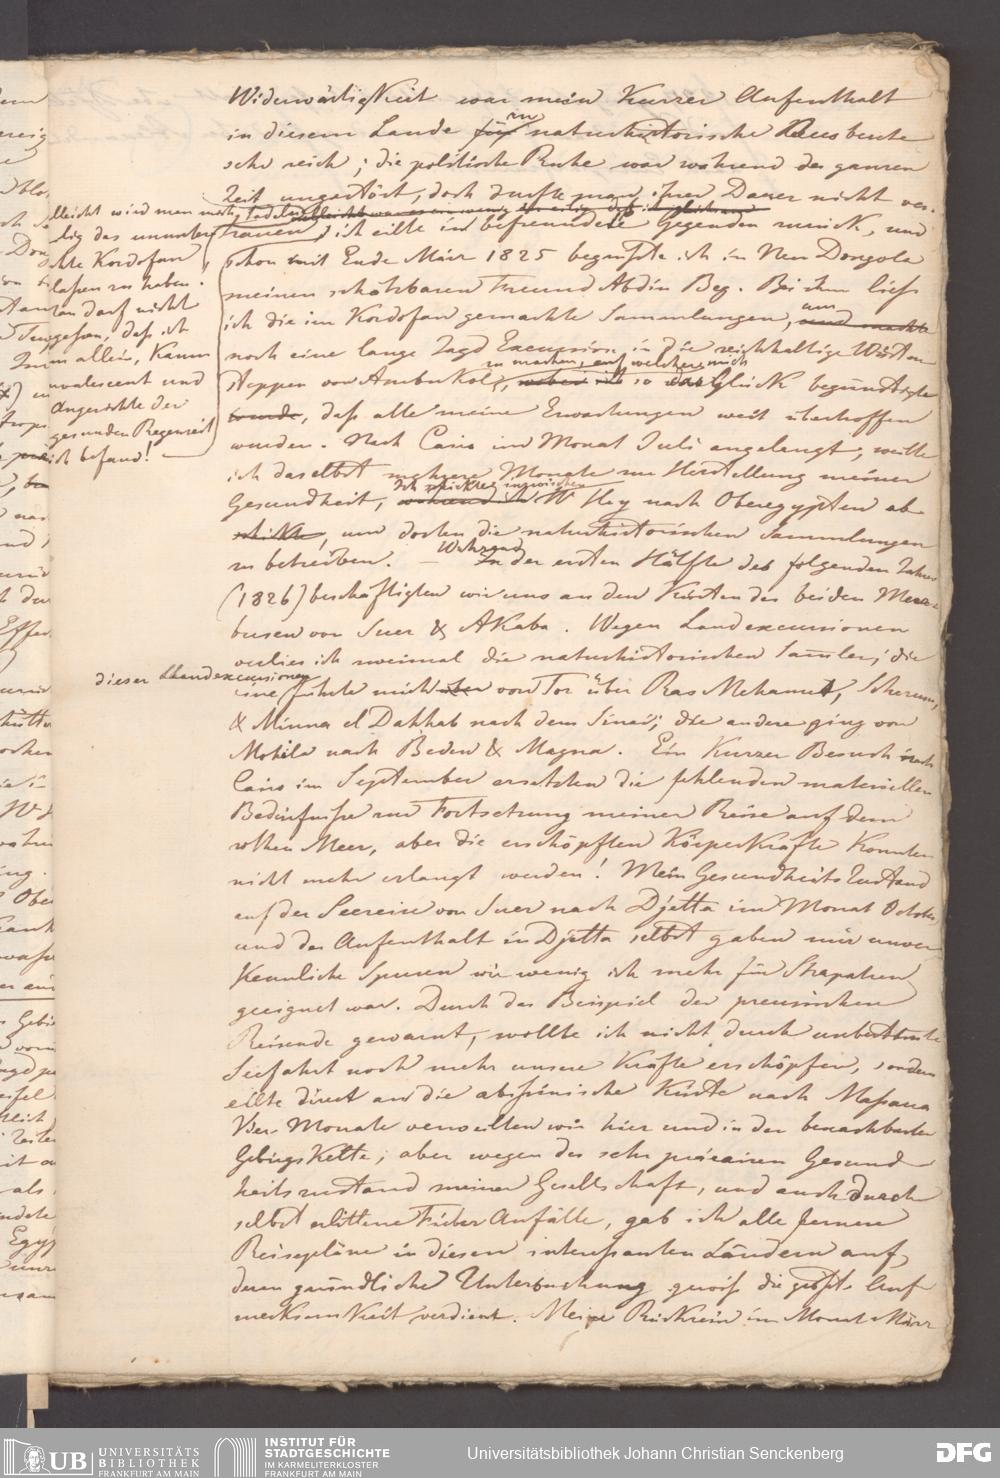 Widerwärtigkeit war mein kurzer Aufenthalt
in diesem Lande für an naturhistorische Ausbeute
sehr reich; die politische Ruhe war während der ganzen
Zeit ungestört, doch durfte man ihrer Dauer nicht ver-
trauen, ich eilte in befreundete Gegenden zurück, und
schon mit Ende März 1825 begrüßte ich in Neu Dongola
meinen schätzbaren Freund Abdin Beg. Bei ihm ließ
ich die im Kordofan gemachte Sammlungen, um und machte
noch eine lange Jagd Excursion in die reichhaltige Wüsten
Steppen von Ambukol, zu machen, auf welcher mich so das Glück begünstigte
wurde, daß alle meine Erwartungen weit übertroffen
wurden. Nach Cairo im Monat Juli angelangt, weilte
ich daselbst mehrere Monate zur Herstellung meiner
Gesundheit, ich schickte inzwischen während ich Hr Hey nach Oberegypten ab
schickte, um dorten die naturhistorischen Sammlungen
zu betreiben. — Während In der ersten Hälfte des folgenden Jahres
(1826) beschäftigten wir uns an den Küsten der beiden Meer-
busen von Suez & Akaba. Wegen Landexcursionen
verlies ich zweimal die naturhistorischen Samler; die
eine dieser Landexcursionen führte mich von Tor über Ras Mehamet, Scherum,
& Minna el Dahhab nach dem Sinai; die andere ging von
Mohila nach Beden & Magna. Ein kurzer Besuch nach
Cairo im September ersetzten die fehlenden materiellen
Bedürfniße zur Fortsetzung meiner Reise auf dem
rothen Meer, aber die erschöpften Körperkräfte konnten
nicht mehr erlangt werden! Mein Gesundheits Zustand
auf der Seereise von Suez nach Djetta im Monat October
und der Aufenthalt in Djetta selbst gaben mir unver-
kennliche Spuren wie wenig ich mehr für Strapatzen
geeignet war. Durch das Beispiel der preusischen
Reisende gewarnt, wollte ich nicht durch unbestimte
Seefahrt noch mehr unsere Kräfte erschöpfen, sondern
eilte direct an die abisinische Küste nach Maßaua
Vier Monate verweilten wir hier und in der benachbarten
Gebirgskette; aber wegen des sehr precairen Gesund
heitszustand meiner Gesellschaft, und auch durch
selbst erlittene Fieber Anfälle, gab ich alle fernere
Reisepläne in diesen interessanten Ländern auf,
deren gründliche Untersuchung gewiß die größte Auf
merksamkeit verdient. Meine Rückreise im Monat März
lleicht wird man mich
dig das ununter
chte Kordofan
laßen zu haben.
an darf nicht
geßen, daß ich
allein, kaum
nvalescent und
Angesichte der
gesunden Regenzeit
ich befand!
UB UNIVERSITÄTS
BIBLIOTHEK
FRANKFURT AM MAIN
INSTITUT FÜR
STADTGESCHICHTE
IM KARMELITERKLOSTER
FRANKFURT AM MAIN
Universitätsbibliothek Johann Christian Senckenberg
DFG